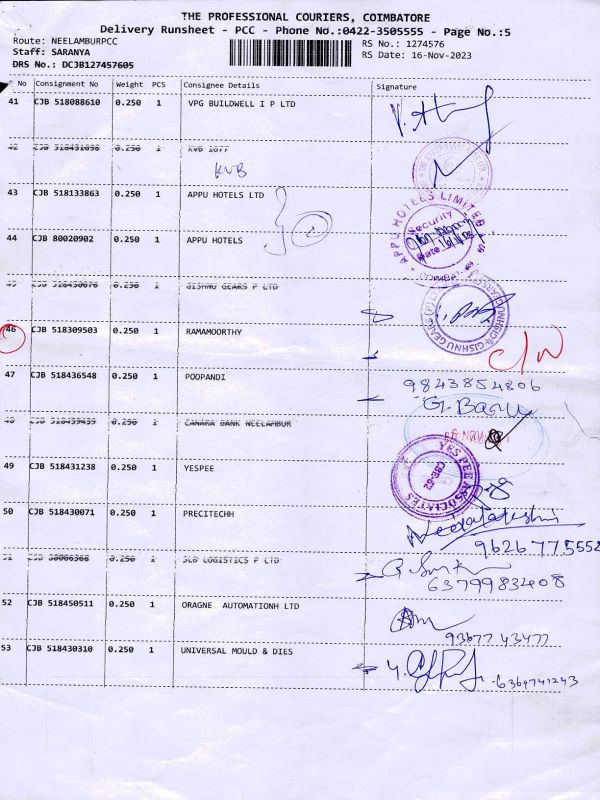 THE PROFESSIONAL COURIERS, COIMBATORE
Delivery Runsheet - PCC - Phone No.:0422-3505555 - Page No.:5
Route: NEELAMBURPCC
RS No.: 1274576
Staff: SARANYA
RS Date: 16-Nov-2023
DRS No.: DCJB127457605
No Consignment No Weight PCS Consignee Details Signature
41 CJB 518088610 0.250 1 VPG BUILDWELL I P LTD
42 CJB 518431058 0.250 1 KVB 1877
KVB
43 CJB 518133863 0.250 1 APPU HOTELS LTD
APPU HOTELS LIMITED
Security
44 CJB 80020902 0.250 1 APPU HOTELS
45 CJB 518430076 0.250 1 GISHNU GEARS P LTD
GISHNU GEARS (P) LTD
46 CJB 518309503 0.250 1 RAMAMOORTHY
C/N
47 CJB 518436548 0.250 1 POOPANDI
9843854806
G. Babu
48 CJB 518439439 0.250 1 CANARA BANK NEELAMBUR
NOV
49 CJB 518431238 0.250 1 YESPEE
YES PEE ASSOCIATES
CBE-62
50 CJB 518430071 0.250 1 PRECITECHH
Neelalakshmi
9626775552
51 CJB 30006368 0.250 1 SCB LOGISTICS P LTD
6379983408
52 CJB 518450511 0.250 1 ORAGNE AUTOMATIONH LTD
93677 43477
53 CJB 518430310 0.250 1 UNIVERSAL MOULD & DIES
6369741243